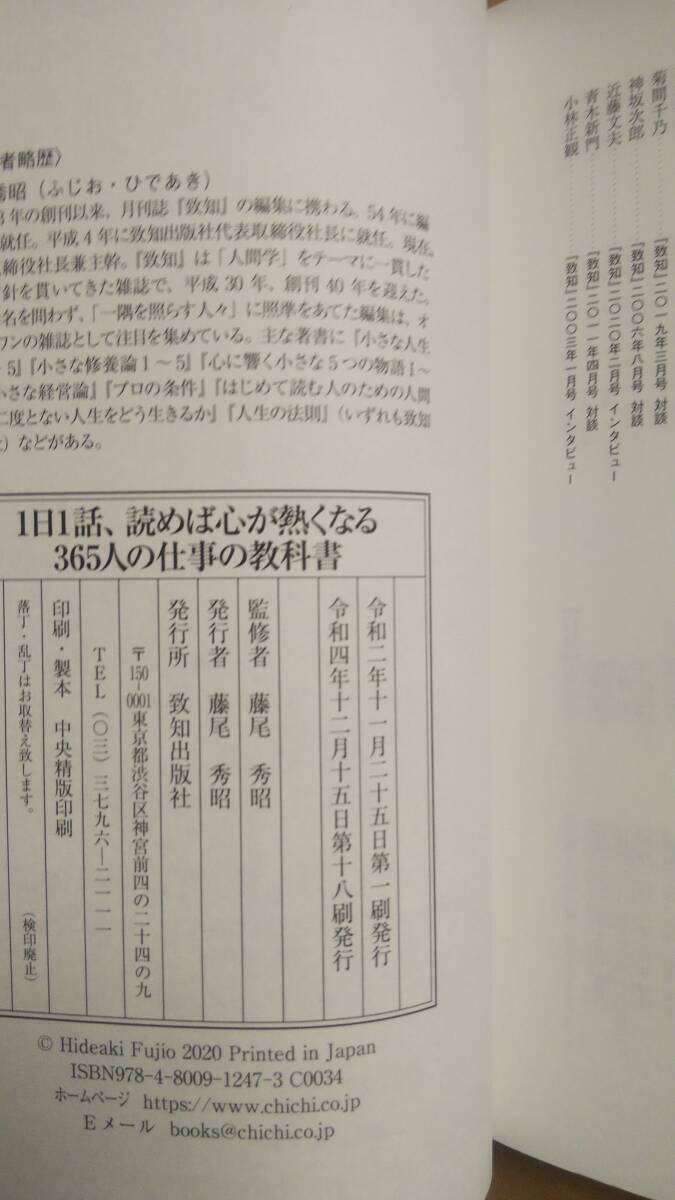 菊間千乃………『致知』二〇一九年三月号 対談
神坂次郎………『致知』二〇〇六年八月号 対談
近藤文夫………『致知』二〇二〇年二月号 インタビュー
青木新門………『致知』二〇一一年四月号 対談
小林正観………『致知』二〇〇三年一月号 インタビュー
者略歴〉
秀昭（ふじお・ひであき）
3年の創刊以来、月刊誌『致知』の編集に携わる。54年に編
就任。平成4年に致知出版社代表取締役社長に就任。現在、
取締役社長兼主幹。『致知』は「人間学」をテーマに一貫した
針を貫いてきた雑誌で、平成30年、創刊40年を迎えた。
名を問わず、「一隅を照らす人々」に照準をあてた編集は、オ
ワンの雑誌として注目を集めている。主な著書に『小さな人生
～5』『小さな修養論1～5』『心に響く小さな5つの物語1～
小さな経営論』『プロの条件』『はじめて読む人のための人間
二度とない人生をどう生きるか』『人生の法則』（いずれも致知
社）などがある。
1日1話、読めば心が熱くなる
365人の仕事の教科書
令和二年十一月二十五日第一刷発行
令和四年十二月十五日第十八刷発行
監修者 藤尾 秀昭
発行者 藤尾 秀昭
発行所 致知出版社
〒150-0001東京都渋谷区神宮前四の二十四の九
TEL（〇三）三七九六―二一一一
印刷・製本 中央精版印刷
落丁・乱丁はお取替え致します。 （検印廃止）
© Hideaki Fujio 2020 Printed in Japan
ISBN978-4-8009-1247-3 C0034
ホームページ https://www.chichi.co.jp
Eメール books@chichi.co.jp